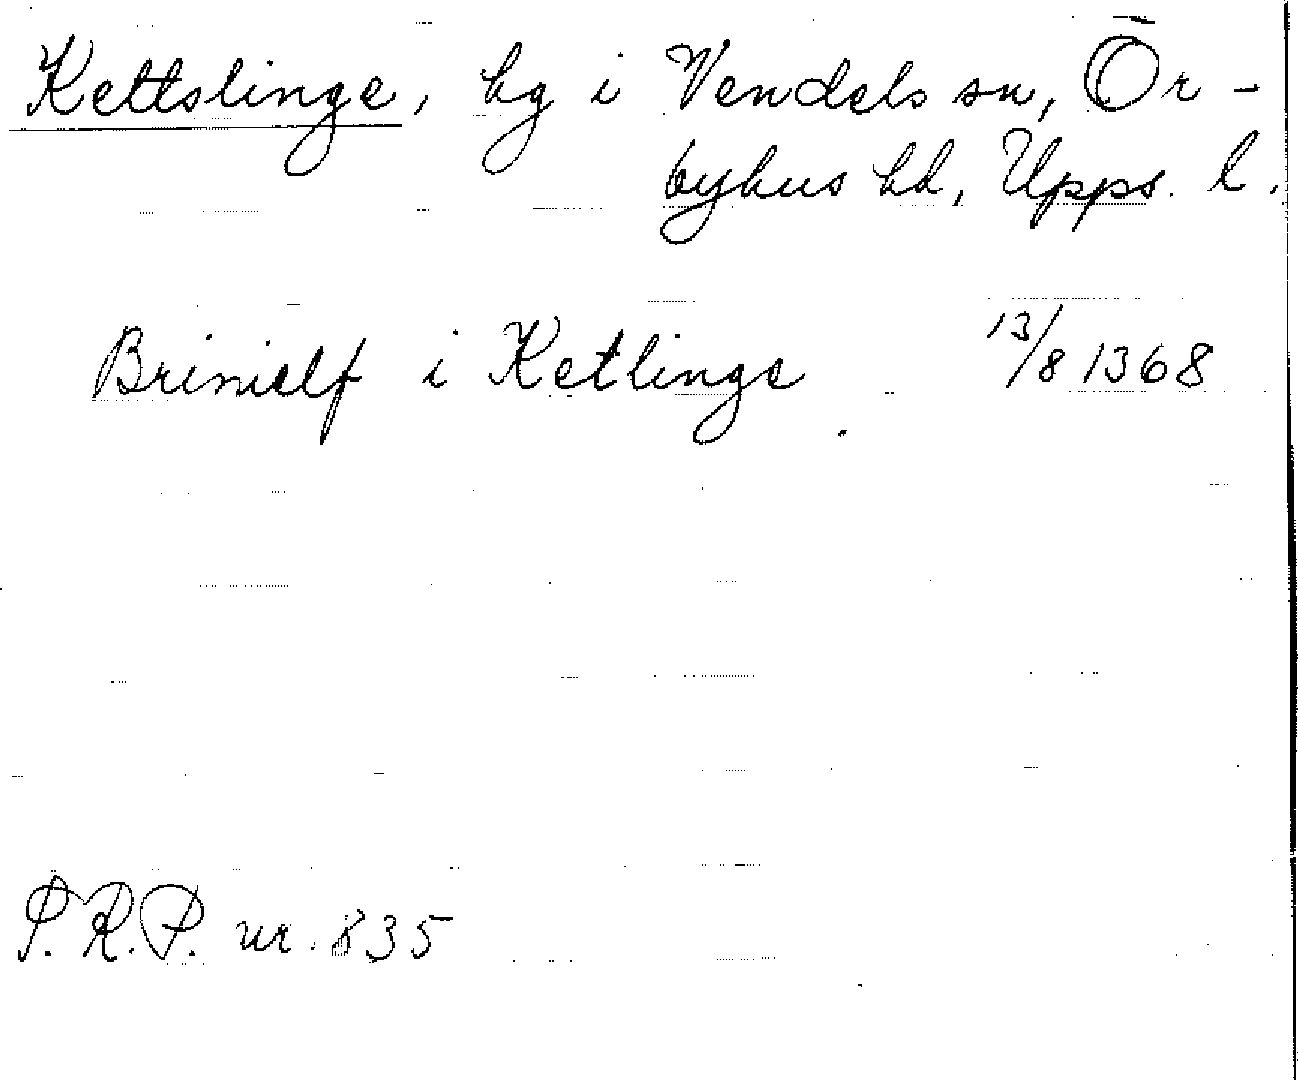 Kettslinge, hg i Vendels sn, Ör-
byhus hd, Upps. l.
Briniclf i Ketlinge 13/8 1368
P.R.P. nr. 835